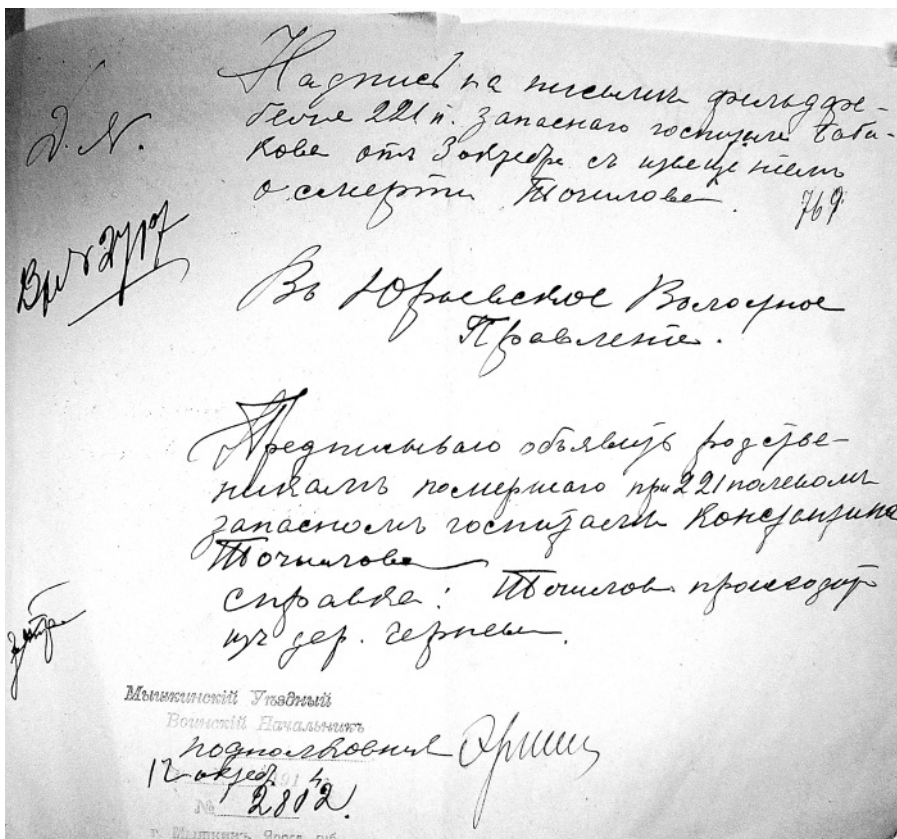 Д. N.
Надпись на письмѣ фельдфе-
беля 221 п. запаснаго госпиталя Баба-
кова отъ 3 октября съ извещенiемъ
о смерти Точилова.
769
Въ Юрьевское Волостное
Правленiе.
Предписываю объявить родстве-
никамъ помершаго при 221 полевомъ
запасномъ госпиталѣ Константина
Точилова
справка: Точиловъ происходит
изъ дер. Чернева.
Мышкинскій Уѣздный
Воинскій Начальникъ
подполковникъ
12 октяб. 1914
№ 2802.
г. Мышкинъ, Яросл. губ.